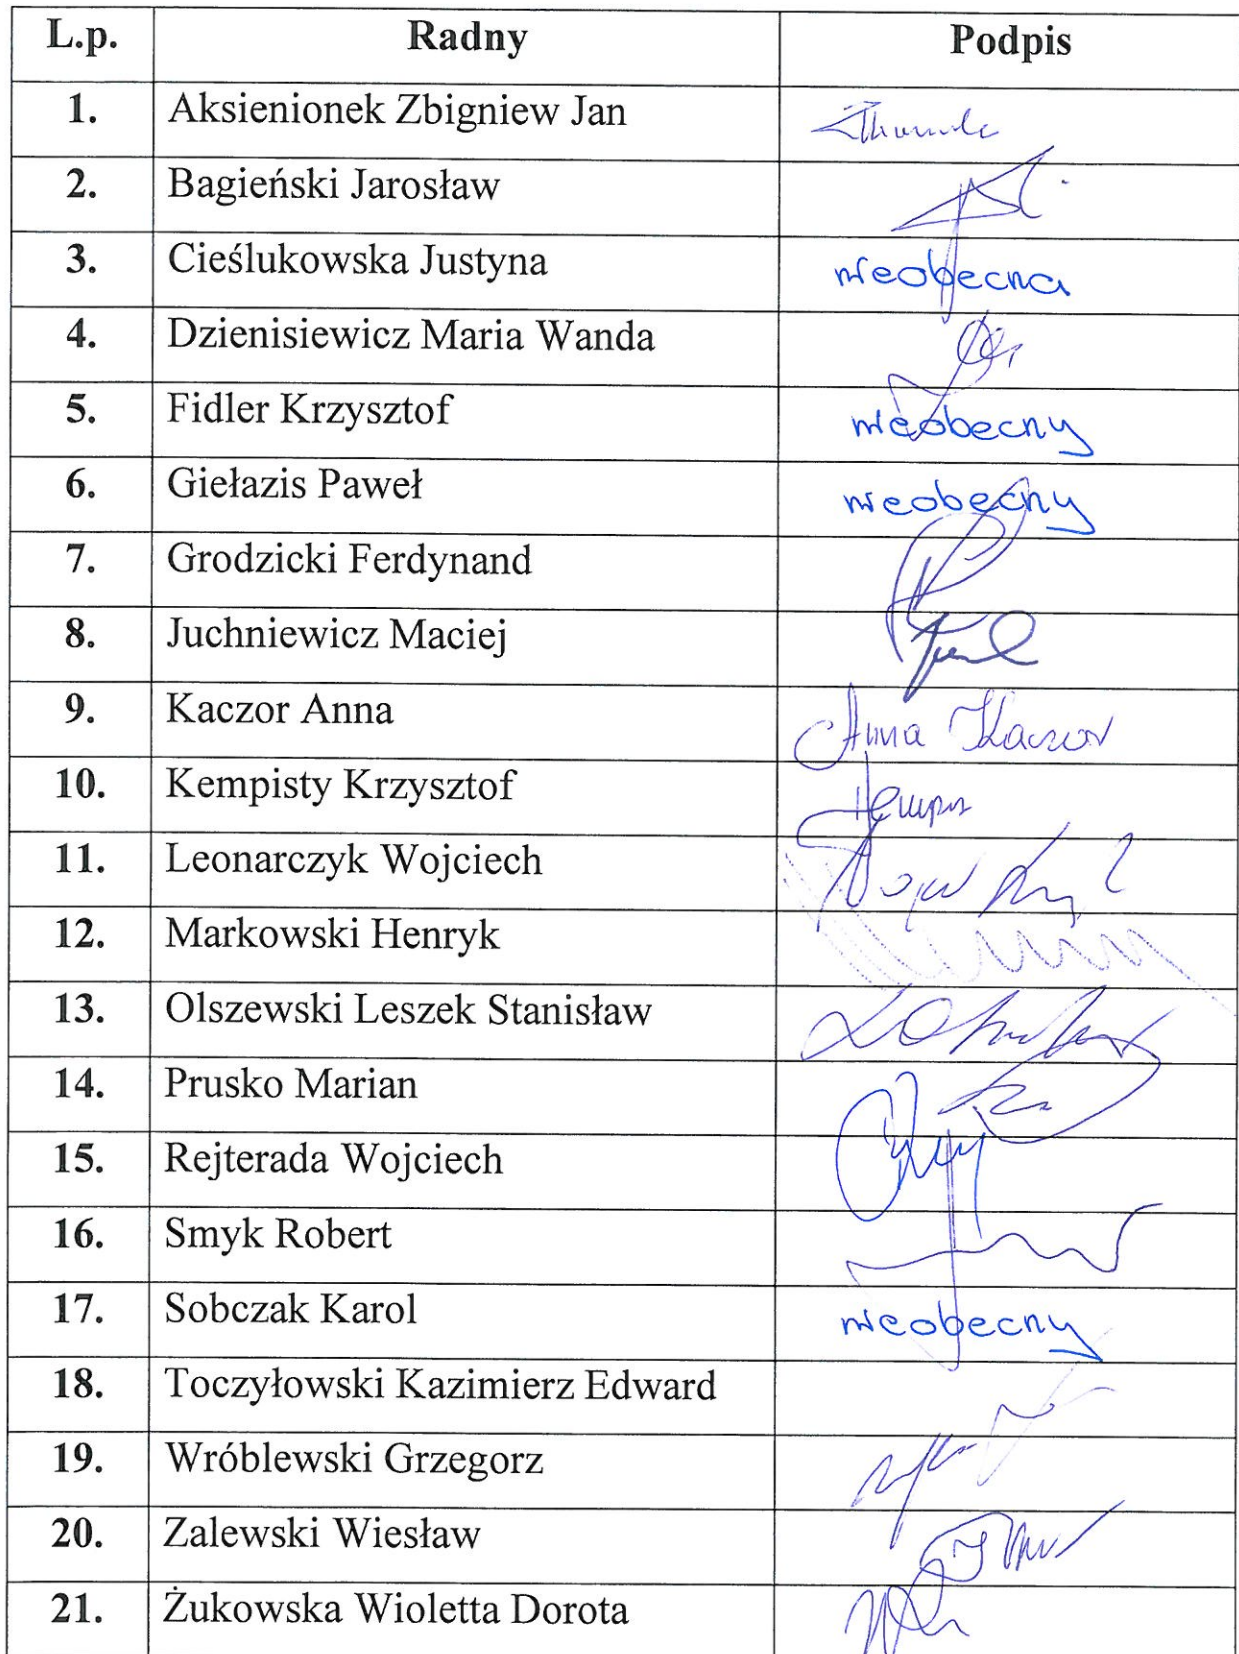 L.p. Radny Podpis
1. Aksienionek Zbigniew Jan
2. Bagieński Jarosław
3. Cieślukowska Justyna nieobecna
4. Dzienisiewicz Maria Wanda
5. Fidler Krzysztof nieobecny
6. Giełazis Paweł nieobecny
7. Grodzicki Ferdynand
8. Juchniewicz Maciej
9. Kaczor Anna Anna Kaczor
10. Kempisty Krzysztof
11. Leonarczyk Wojciech
12. Markowski Henryk
13. Olszewski Leszek Stanisław
14. Prusko Marian
15. Rejterada Wojciech
16. Smyk Robert
17. Sobczak Karol nieobecny
18. Toczyłowski Kazimierz Edward
19. Wróblewski Grzegorz
20. Zalewski Wiesław
21. Żukowska Wioletta Dorota